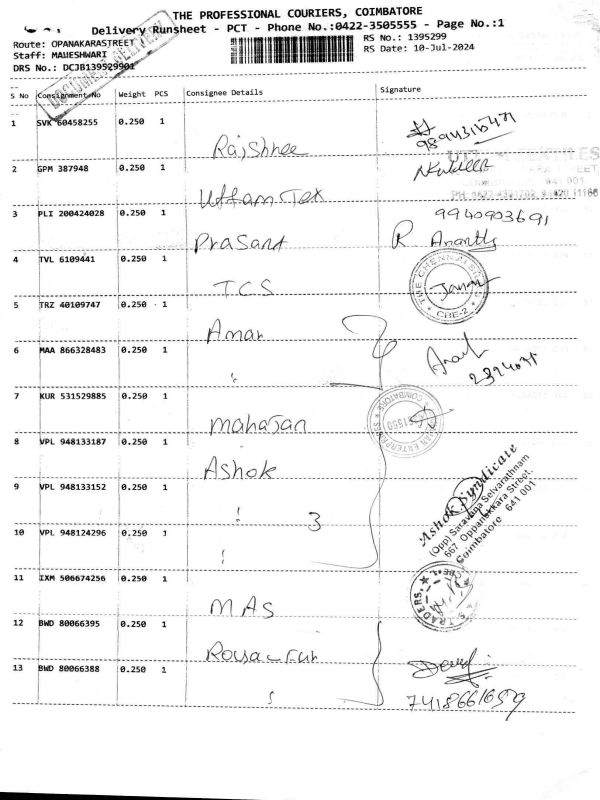 THE PROFESSIONAL COURIERS, COIMBATORE
Delivery Runsheet - PCT - Phone No.:0422-3505555 - Page No.:1
Route: OPANAKARASTREET
RS No.: 1395299
Staff: MAHESHWARI
RS Date: 10-Jul-2024
DRS No.: DCJB139529901
S No Consignment No Weight PCS Consignee Details Signature
1 SVK 60458255 0.250 1 Rajshree
2 GPM 387948 0.250 1 Uttam Tex
3 PLI 200424028 0.250 1 Prasant 9940903691
R Ananth
4 TVL 6109441 0.250 1 TCS
THE CHENNAI SILKS
CBE-2
5 TRZ 40109747 0.250 1 Aman
6 MAA 866328483 0.250 1
7 KUR 531529885 0.250 1 Mahajan
COIMBATORE
8 VPL 948133187 0.250 1 Ashok
9 VPL 948133152 0.250 1
3
Ashok Syndicate
(Opp) Saravana Selvarathnam
667, Oppanakkara Street,
Coimbatore 641 001
10 VPL 948124296 0.250 1
11 IXM 506674256 0.250 1 MAS
TRADERS
12 BWD 80066395 0.250 1
13 BWD 80066388 0.250 1
7418661659